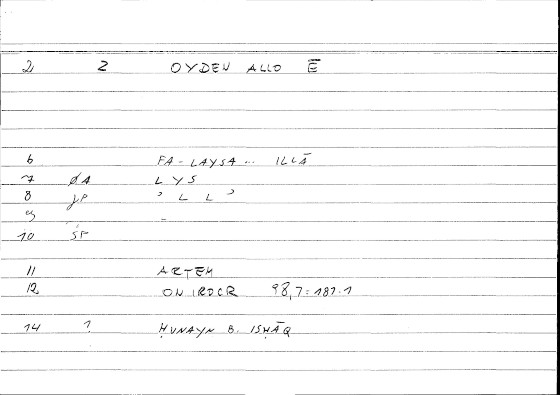 2 2 OYDEN ALLO Ē
6 FA-LAYSA... ILLĀ
7 ØA LYS
8 JP ʾLLʾ
9 -
10 ŠP
11 ARTEM
12 ONIROCR 98,7=181.1
14 ? ḤUNAYN B. ISḤĀQ